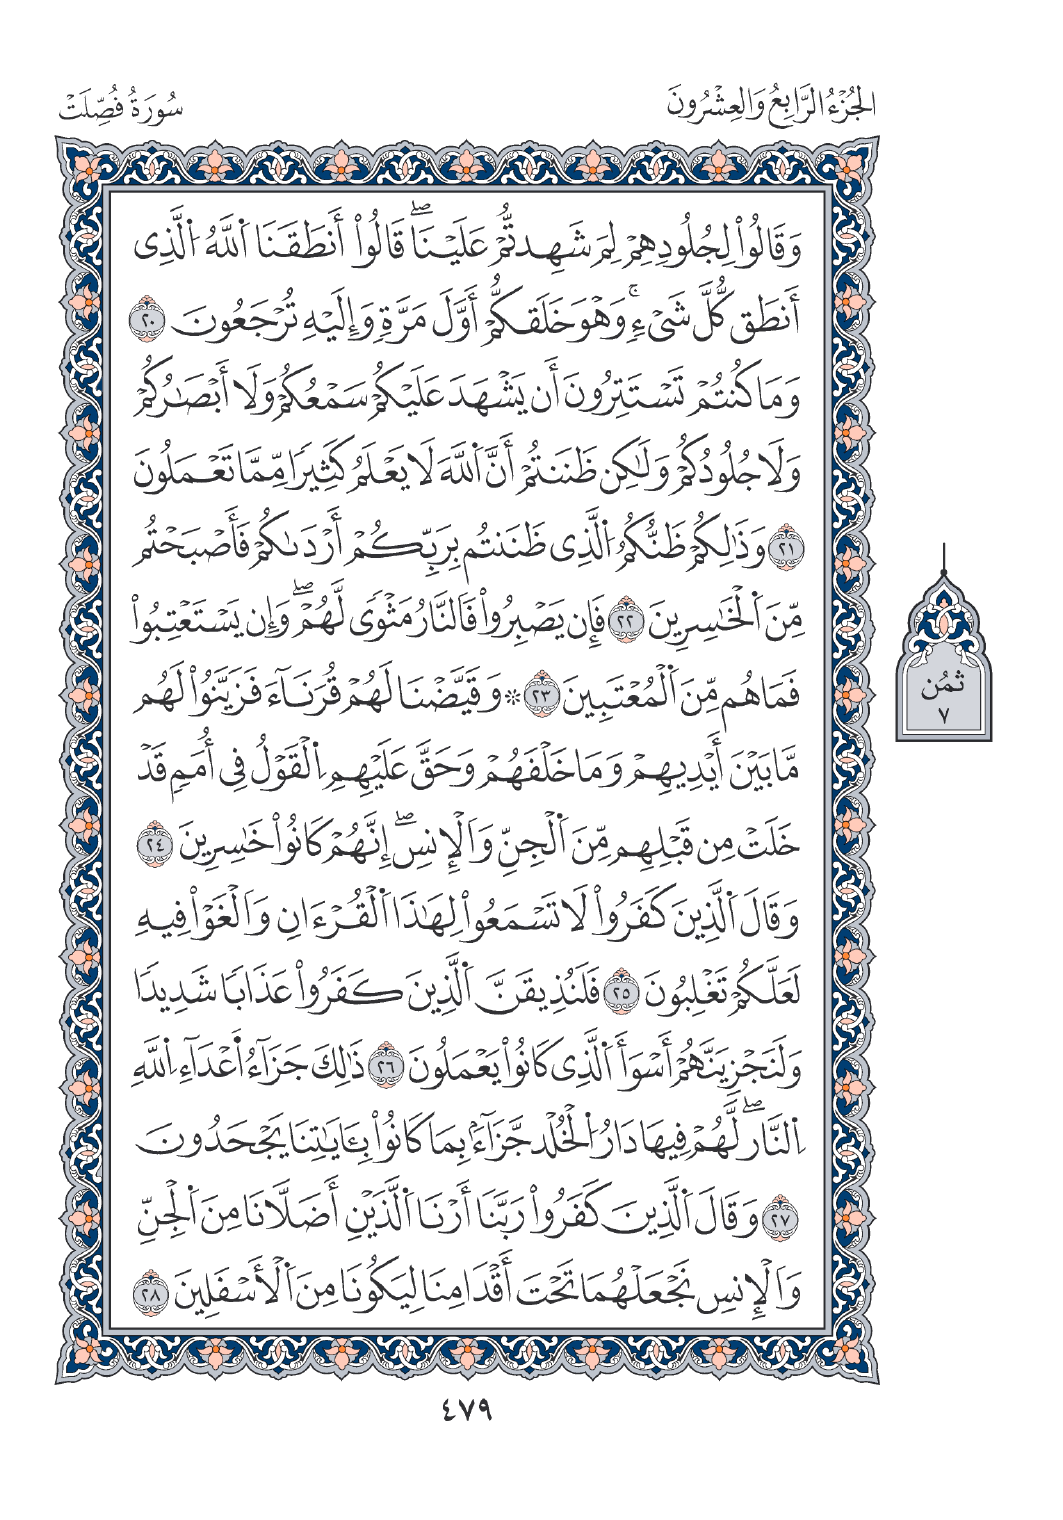 الجُزْءُ الرَّابِعُ وَالعِشْرُونَ
سُورَةُ فُصِّلَتْ
وَقَالُواْ لِجُلُودِهِمْ لِمَ شَهِدتُّمْ عَلَيْنَاۖ قَالُواْ أَنطَقَنَا اَللَّهُ اُلَّذِى
أَنطَق كُّلَّ شَىْءٍۚ وَهْوَ خَلَقكُّمْ أَوَّلَ مَرَّةٍ وَإِلَيْهِ تُرْجَعُونَ ٢٠
وَمَا كُنتُمْ تَسْتَتِرُونَ أَن يَشْهَدَ عَلَيْكُمْ سَمْعُكُمْ وَلَا أَبْصَٰرُكُمْ
وَلَا جُلُودُكُمْ وَلَٰكِن ظَنَنتُمْ أَنَّ اَللَّهَ لَا يَعْلَمُ كَثِيرًا مِّمَّا تَعْمَلُونَ
٢١ وَذَٰلِكُمْ ظَنُّكُمُ اُلَّذِى ظَنَنتُم بِرَبِّكُمْ أَرْدَىٰكُمْ فَأَصْبَحْتُم
مِّنَ اَلْخَٰسِرِينَ ٢٢ فَإِن يَصْبِرُواْ فَالنَّارُ مَثْوًى لَّهُمْۖ وَإِن يَسْتَعْتِبُواْ
فَمَا هُم مِّنَ اَلْمُعْتَبِينَ ٢٣ ۞ وَقَيَّضْنَا لَهُمْ قُرَنَآءَ فَزَيَّنُواْ لَهُم
مَّا بَيْنَ أَيْدِيهِمْ وَمَا خَلْفَهُمْ وَحَقَّ عَلَيْهِمِ اِلْقَوْلُ فِى أُمَمٍ قَدْ
خَلَتْ مِن قَبْلِهِم مِّنَ اَلْجِنِّ وَاَلْإِنسِۖ إِنَّهُمْ كَانُواْ خَٰسِرِينَ ٢٤
وَقَالَ اَلَّذِينَ كَفَرُواْ لَا تَسْمَعُواْ لِهَٰذَا اَلْقُرْءَانِ وَاَلْغَوْاْ فِيهِ
لَعَلَّكُمْ تَغْلِبُونَ ٢٥ فَلَنُذِيقَنَّ اَلَّذِينَ كَفَرُواْ عَذَابًا شَدِيدًا
وَلَنَجْزِيَنَّهُمْ أَسْوَأَ اَلَّذِى كَانُواْ يَعْمَلُونَ ٢٦ ذَٰلِكَ جَزَآءُ أَعْدَآءِ اِللَّهِ
اِلنَّارۖ لَّهُمْ فِيهَا دَارُ اُلْخُلْد جَّزَآءَۢ بِمَا كَانُواْ بِـَٔايَٰتِنَا يَجْحَدُونَ
٢٧ وَقَالَ اَلَّذِينَ كَفَرُواْ رَبَّنَا أَرْنَا اَلَّذَيْنِ أَضَلَّانَا مِنَ اَلْجِنِّ
وَاَلْإِنسِ نَجْعَلْهُمَا تَحْتَ أَقْدَامِنَا لِيَكُونَا مِنَ اَلْأَسْفَلِينَ ٢٨
ثمُن
٧
٤٧٩